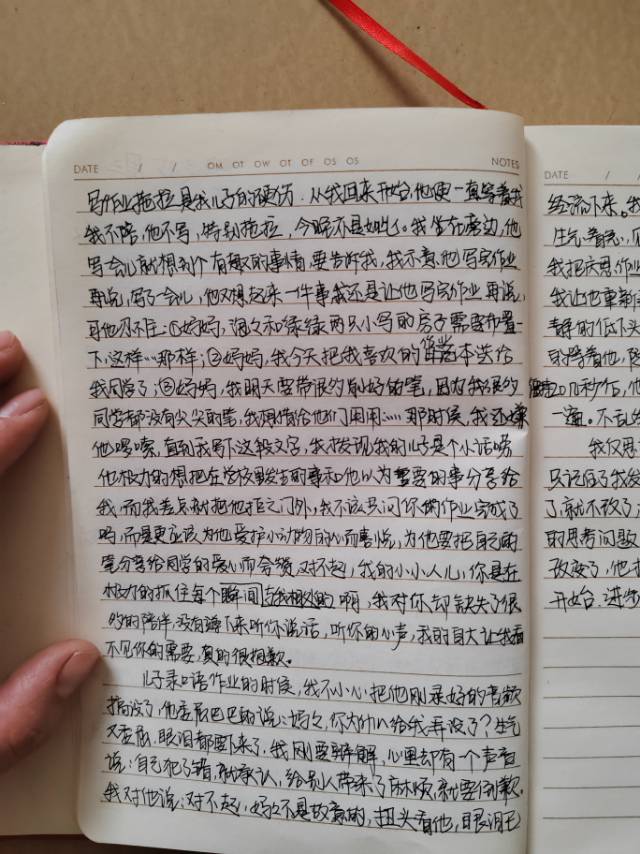 DATE / / OM OT OW OT OF OS OS NOTES
写作业拖拉是我儿子的硬伤．从我回来开始，他便一直等着我
我不陪，他不写，特别拖拉，今晚不是如此。我坐在旁边，他
写一会儿就想到个有趣的事情，要告诉我，我示意他写完作业
再说，写了一会儿，他又想起来一件事我还是让他写完作业再说，
可他忍不住：①妈妈，润之和绿绿两只小写的房子需要布置一
下，这样…那样；②妈妈，我今天把我喜欢的笔记本送给
我同学了；③妈妈，我明天要带很多削好的笔，因为我很多
同学都没有尖尖的笔，我想借给他们用用……那时候，我还嫌
他啰嗦，直到我写下这段文字，我发现我的儿子是个小话唠
他极力的想把在学校里发生的事和他以为重要的事分享给
我，而我差点就把他拒之门外，我不该只问你的作业完成了
吗，而是更应该为他爱护小动物的心而喜悦，为他要把自己的
笔分享给同学的爱心而会赞，对不起，我的小小人儿，你是在
极力的抓住每个瞬间与我相处的啊，我对你却缺失了很
多的陪伴，没有蹲下来听你说话，听你的心声，我的自大让我看
不见你的需要，真的很抱歉。
儿子录口语作业的时候，我不小心把他刚录好的音频
搞没了，他委屈巴巴的说：妈妈，你为什么给我弄没了？生气
又委屈，眼泪都要下来了，我刚要辩解，心里却有一个声音
说：自己犯了错，就承认，给别人带来了麻烦，就要道歉。
我对他说：对不起，妈妈不是故意的，扭头看他，眼泪已
DATE / /
经流下来。我
生气，着急，
我把庆恩作业
我让他重新
静的低下头
一遍。不乱
我仅用
只记住了我发
了，就不改了
的思考问题
改变了，他
开始，进步